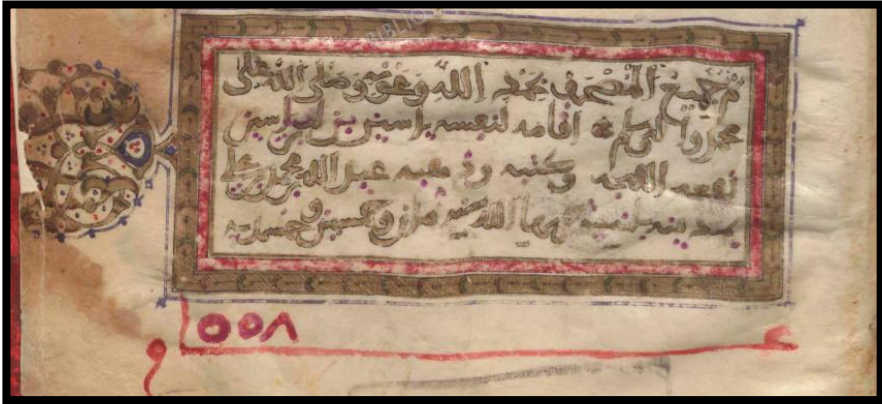 تم جميع المصحف بحمد الله وعونه وصلى الله على
محمد وآله وسلم اقامه لنفسه ياسين بن لب بن ياسين
نفعه الله به وكتبه وذهبه عبد الله بن محمد بن علي
بمدينة بلنسية حرسها الله سنة ثمان وخمسين وخمسمائة
٥٥٨